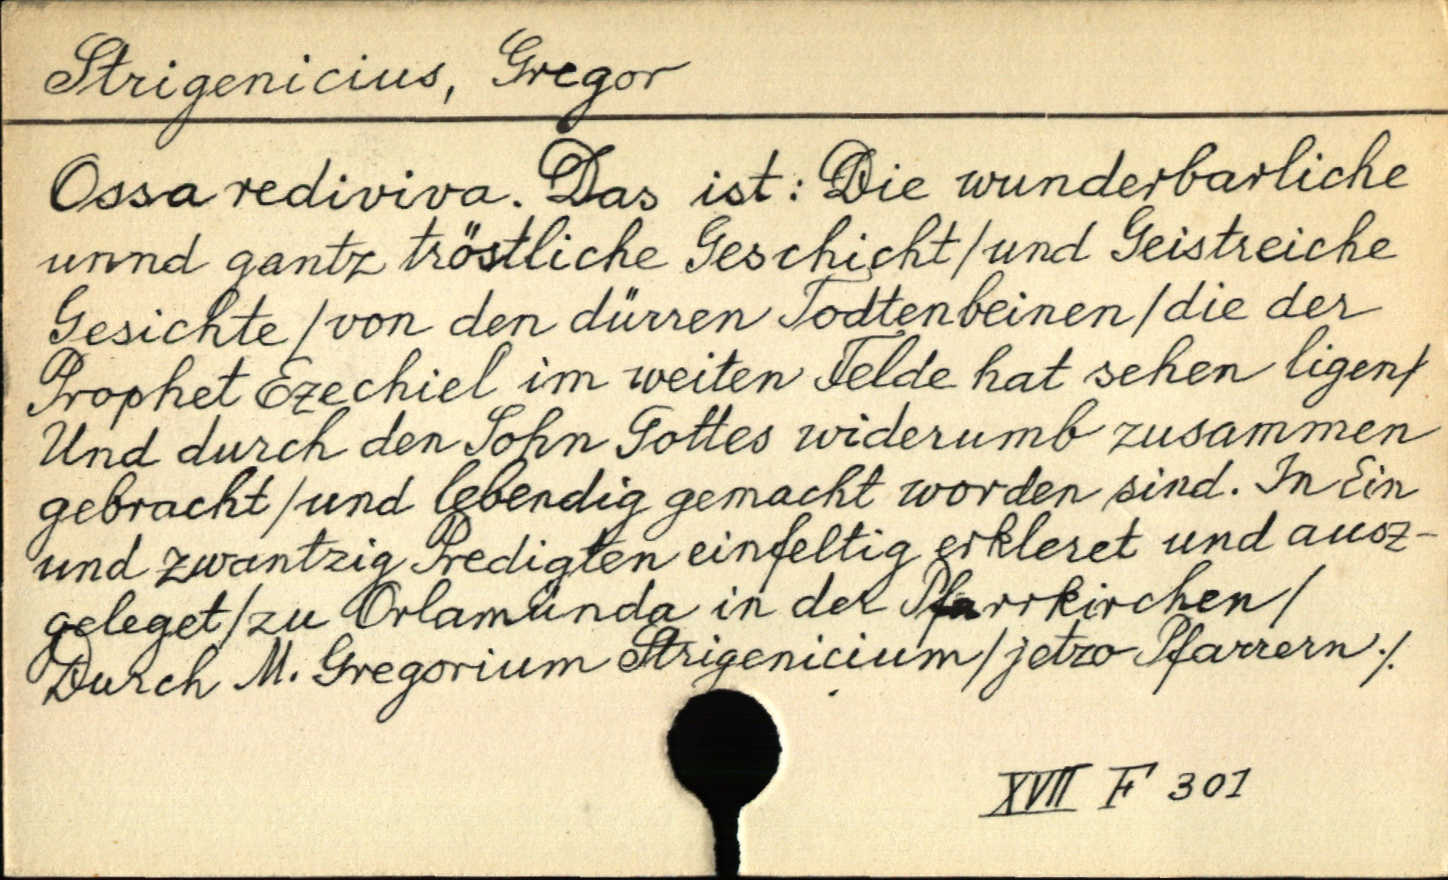 Strigenicius, Gregor
Ossa rediviva. Das ist: Die wunderbarliche
unnd gantz tröstliche Geschicht/und Geistreiche
Gesichte/von den dürren Todtenbeinen/die der
Prophet Ezechiel im weiten Felde hat sehen ligen/
Und durch den Sohn Gottes widerumb zusammen
gebracht/und lebendig gemacht worden sind. In Ein
und zwantzig Predigten einfeltig erkleret und ausz-
geleget/zu Orlamünda in der Pfarrkirchen/
Durch M. Gregorium Strigenicium/jetzo Pfarrern./.
XVII F 301